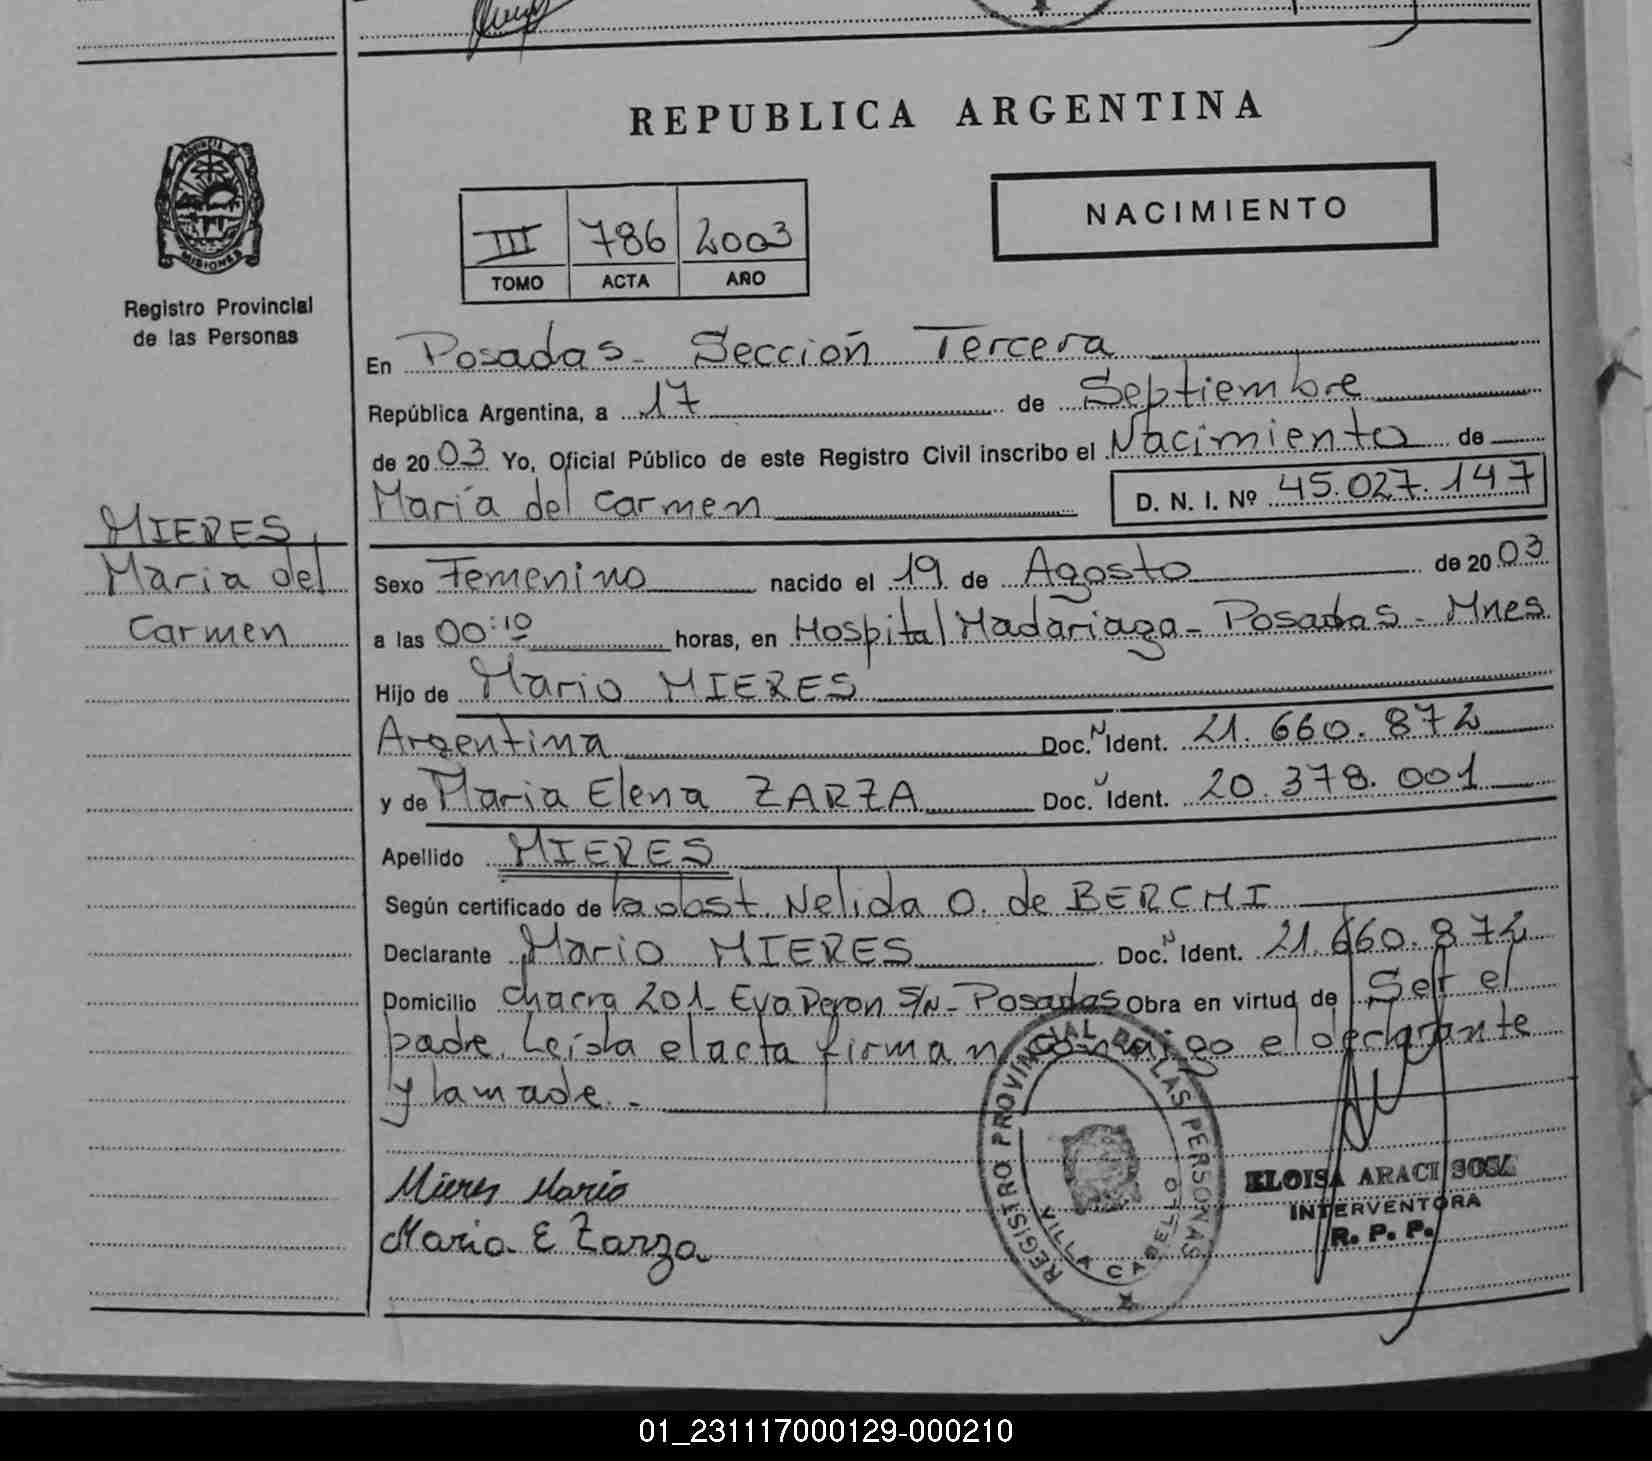 REPUBLICA ARGENTINA
NACIMIENTO
III 786 2003
TOMO ACTA AÑO
PROVINCIA DE MISIONES
Registro Provincial
de las Personas
MIERES,
Maria del
Carmen
En Posadas - Sección Tercera
República Argentina, a 17 de Septiembre
de 2003 Yo, Oficial Público de este Registro Civil inscribo el Nacimiento de
María del Carmen D. N. I. Nº 45.027.147
Sexo Femenino nacido el 19 de Agosto de 2003
a las 00:10 horas, en Hospital Madariaga - Posadas - Mnes.
Hijo de Mario MIERES
Argentina Doc. N Ident. 21.660.872
y de Maria Elena ZARZA Doc. Ident. 20.378.001
Apellido MIERES
Según certificado de la obst. Nelida O. de BERCHI
Declarante Mario MIERES Doc. N Ident. 21.660.872
Domicilio Chacra 201 - Eva Peron S/N - Posadas Obra en virtud de Ser el
padre. Leída el acta firman conmigo el declarante
y la made. -
Mieres Mario
Maria E Zarza
REGISTRO PROVINCIAL DE LAS PERSONAS
VILLA CABELLO
ELOISA ARACI SOSA
INTERVENTORA
R. P. P.
01_231117000129-000210